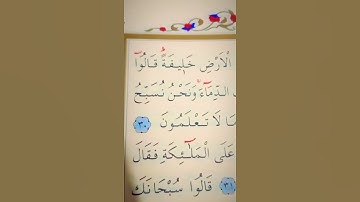 الْاَرْضِ خَلٖيفَةًؕ قَالُٓوا
الدِّمَٓاءَۚ وَنَحْنُ نُسَبِّحُ
مَا لَا تَعْلَمُونَ ﴿٣٠﴾
عَلَى الْمَلٰٓئِكَةِ فَقَالَ
﴿٣١﴾ قَالُوا سُبْحَانَكَ